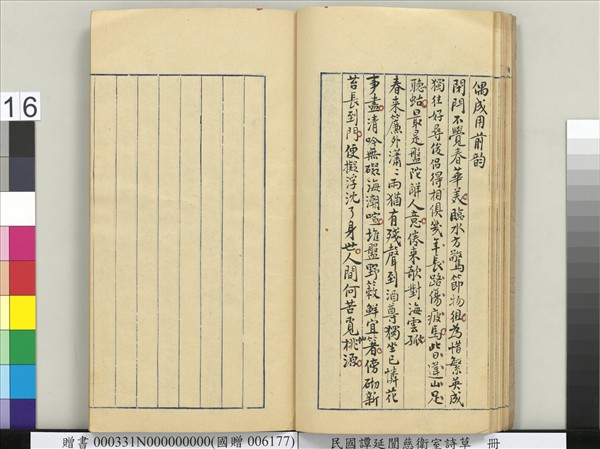 偶成用前韵
閉門不覺春華美臨水方驚節物徂為惜繁英成
獨往好尋俊侶得相俱幾年長路傷疲馬此日還山足
聽蛄最是盤陀解人意倦來欹對海雲孤
春來簾外瀟〻雨猶有殘聲到酒尊獨坐已憐花
事盡清吟無礙海潮喧堆盤野蔌鮮宜箸傍砌新
苔長到門便擬浮沈了身世人間何苦覓桃源
16
贈書 000331N000000000(國贈 006177)
民國譚延闓慈衛室詩草 冊